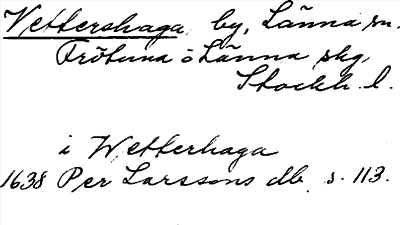 Vettershaga by, Länna sn.
Frötuna o Länna skg,
Stockh. l.
i Wetterhaga
1638 Per Larssons db s. 113.